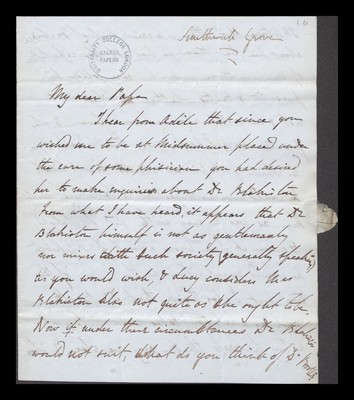 Southwick Grove
UNIVERSITY COLLEGE LONDON
GALTON PAPERS
My dear Papa
I hear from Adèle that since you
wished me to be at Midsummer placed under
the care of some phisician you had desired
her to make inquiries about Dr Blakiston
From what I have heard it appears that Dr
Blakiston himself is not as gentlemanly
nor mixes with such society (generally speaking)
as you would wish, & Lucy considers Mrs
Blakiston also not quite as she ought to be
Now if under these circumstances Dr Blakiston
would not suit, what do you think of Dr